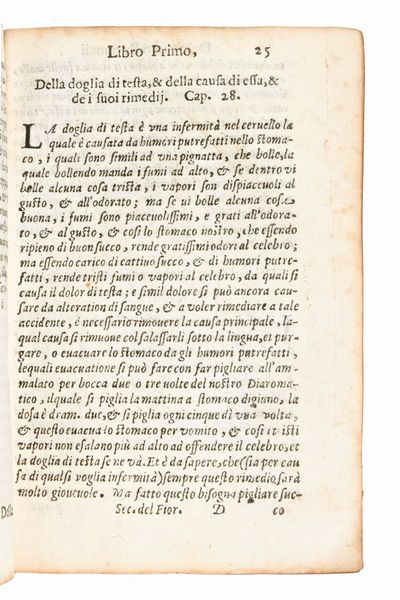 Libro Primo, 25
Della doglia di testa, & della causa di essa, &
de i suoi rimedij. Cap. 28.
LA doglia di testa è vna infermità nel ceruello la
quale è causata da humori putrefatti nello stoma-
co, i quali sono simili ad vna pignatta, che bolle, la
quale bollendo manda i fumi ad alto, & se dentro vi
bolle alcuna cosa trista, i vapori son dispiaceuoli al
gusto, & all'odorato; ma se ui bolle alcuna cosa
buona, i fumi sono piaceuolissimi, e grati all'odora-
to, & al gusto, & così lo stomaco nostro, che essendo
ripieno di buon succo, rende gratissimi odori al celebro;
ma essendo carico di cattiuo succo, & di humori putre-
fatti, rende tristi fumi o vapori al celebro, da quali si
causa il dolor di testa; e simil dolore si può ancora cau-
sare da alteration di sangue, & a voler rimediare a tale
accidente, è necessario rimouere la causa principale, la-
qual causa si rimuoue col salassarli sotto la lingua, et pur-
gare, o euacuare lo stomaco da gli humori putrefatti,
lequali euacuatione si può fare con far pigliare all'am-
malato per bocca due o tre uolte del nostro Diaroma-
tico, ilquale si piglia la mattina a stomaco digiuno, la
dosa è dram. due, & si piglia ogni cinque dì vna volta,
& questo euacua lo stomaco per vomito, & così tristi
vapori non esalano più ad alto ad offendere il celebro, et
la doglia di testa se ne và. Et è da sapere, che (sia per cau
sa di qual si voglia infermità) sempre questo rimedio sarà
molto gioueuole. Ma fatto questo bisogna pigliare suc-
Sec. del Fior. D co
Della